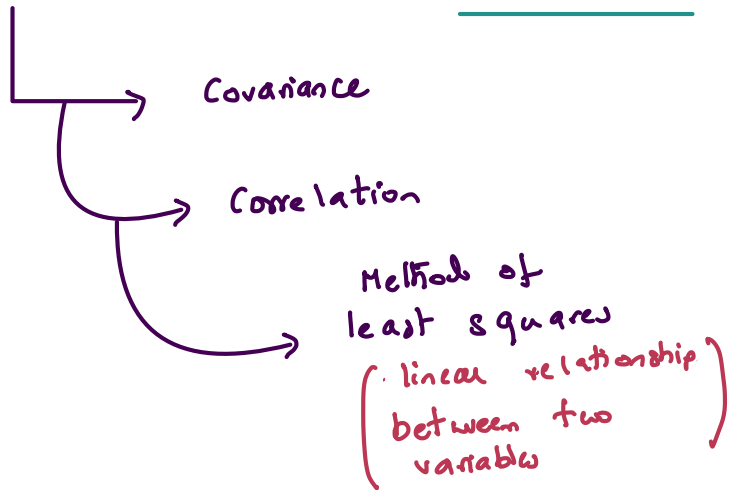 Covariance
Correlation
Method of
least squares
(linear relationship
between two
variables)